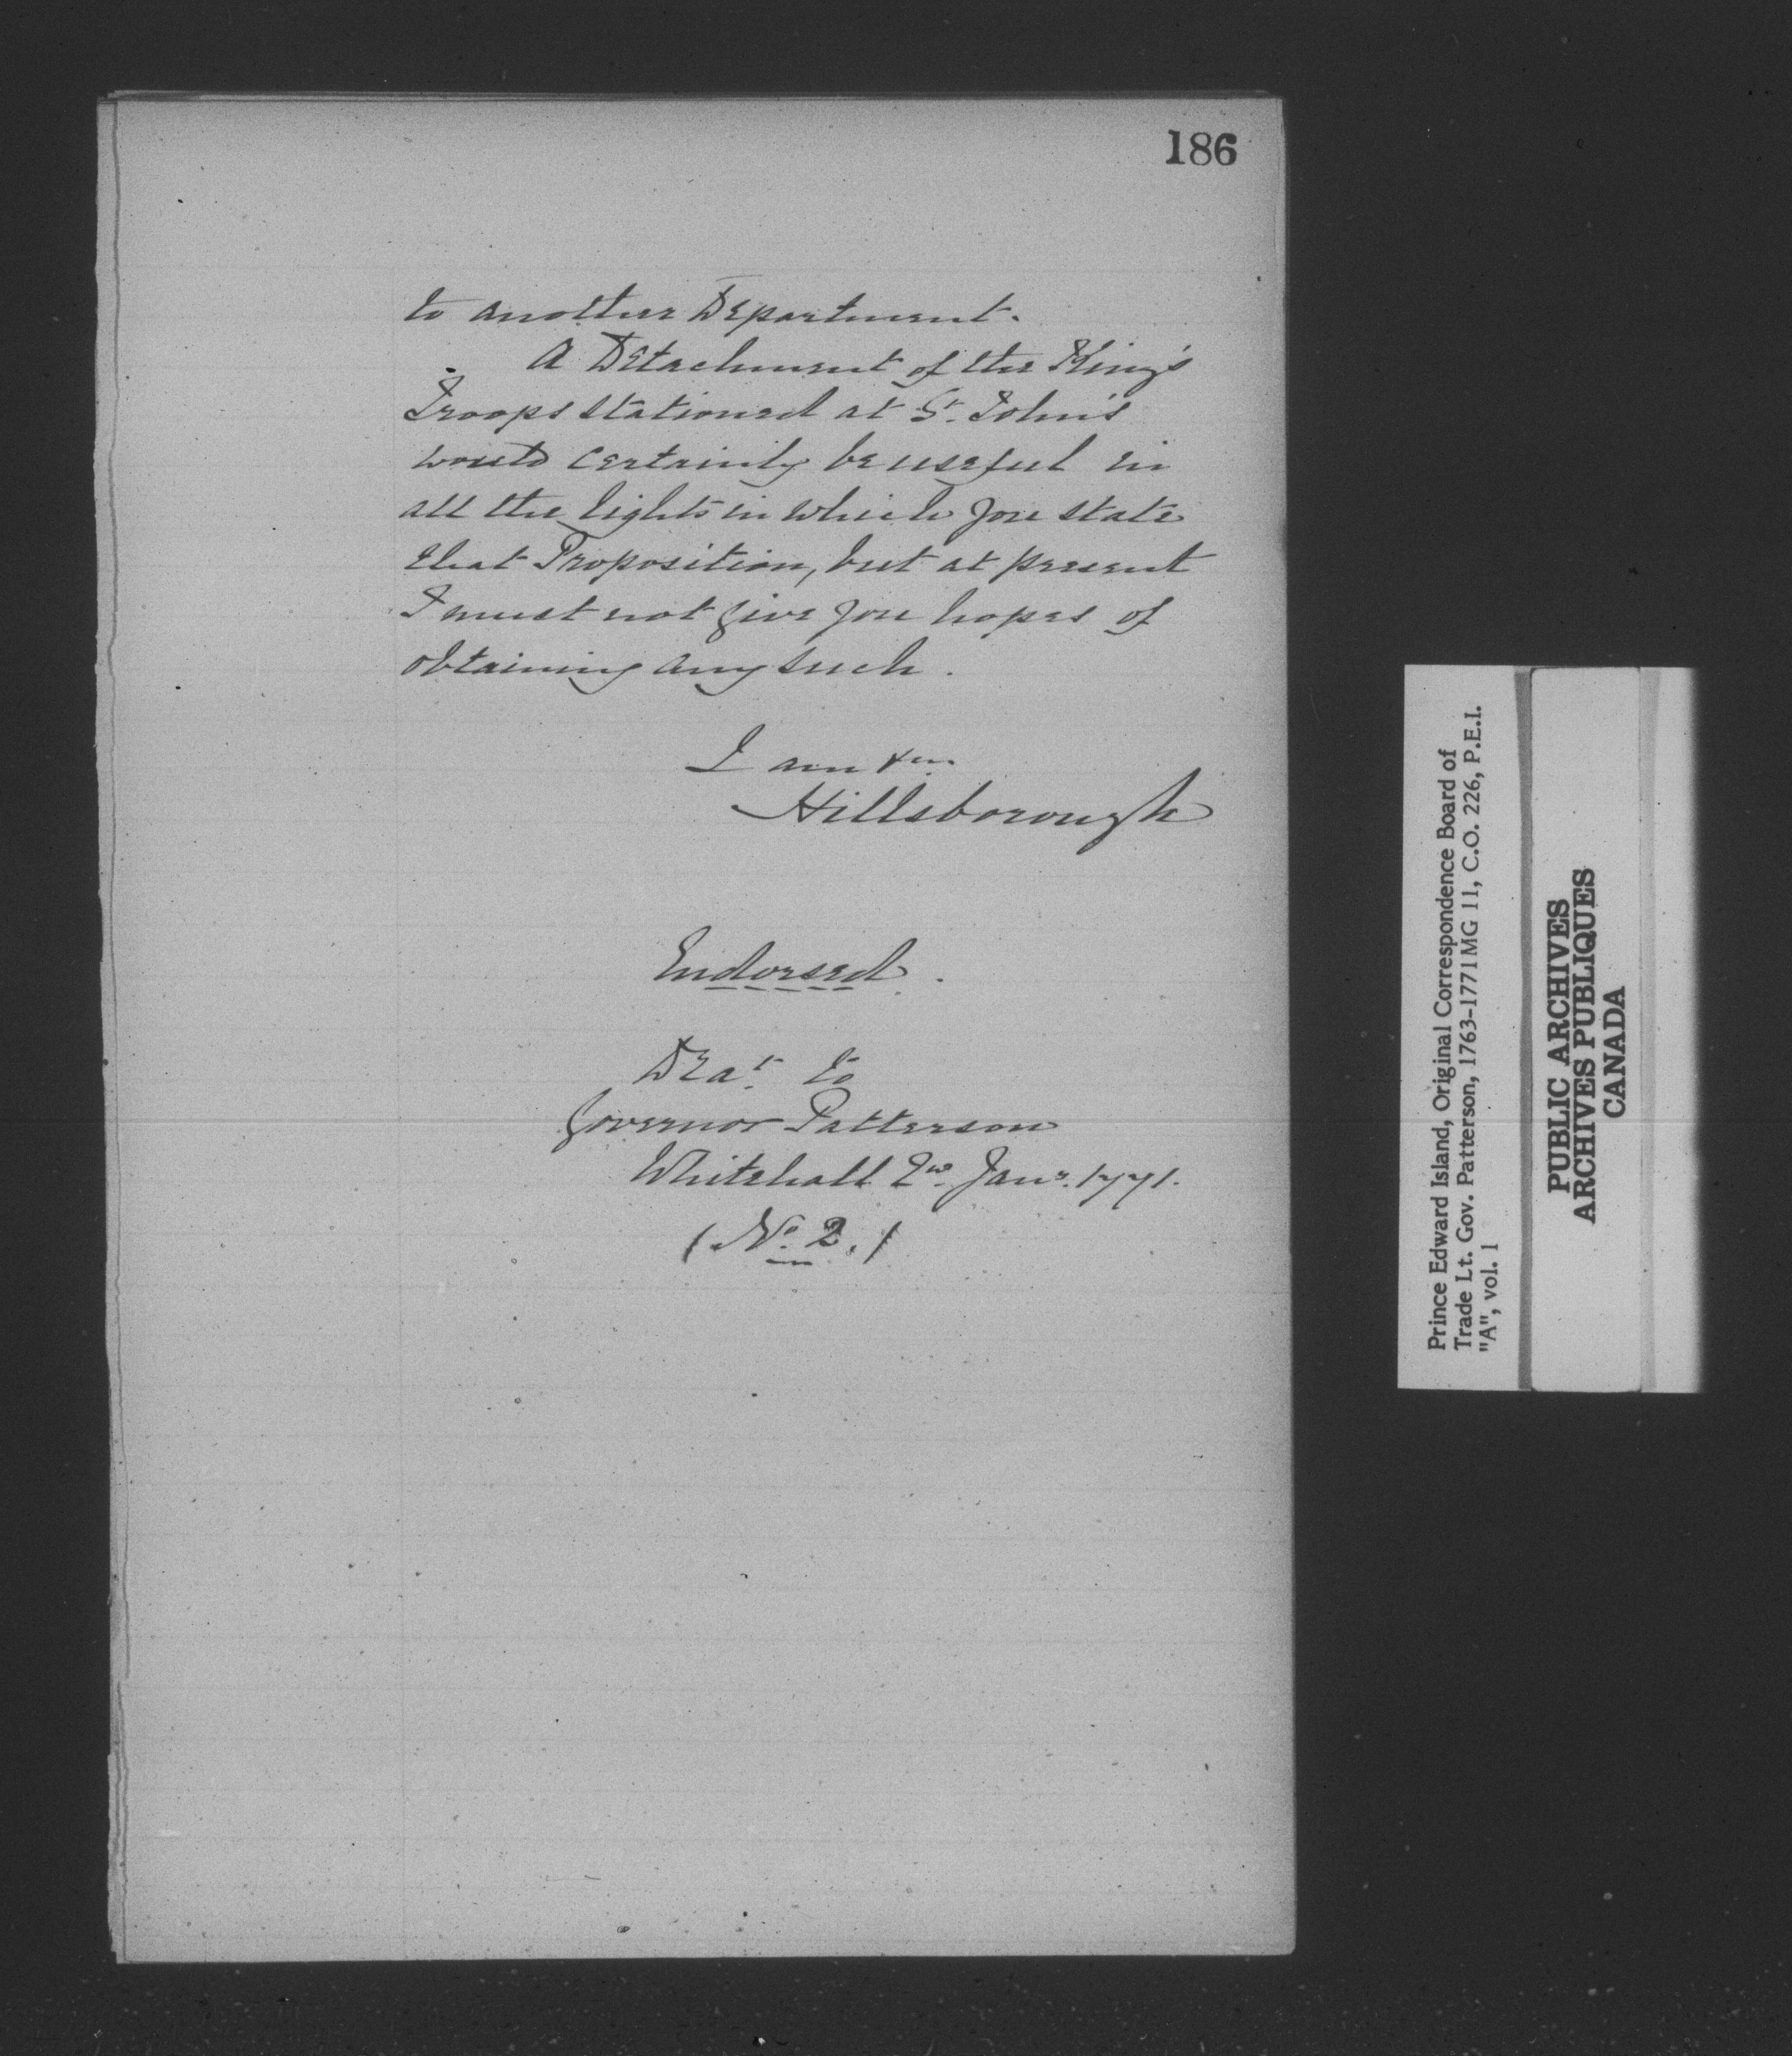 186
to another Department.
A Detachment of the King's
Troops stationed at St. John's
would certainly be useful in
all the lights in which you state
that Proposition, but at present
I must not give you hopes of
obtaining any such.
I am &c.
Hillsborough
Endorsed.
to
Governor Patterson
Whitehall 2d. Jany. 1771.
(No. 2.)
Prince Edward Island, Original Correspondence Board of
Trade Lt. Gov. Patterson, 1763-1771 MG 11, C.O. 226, P.E.I.
"A", vol. 1
PUBLIC ARCHIVES
ARCHIVES PUBLIQUES
CANADA